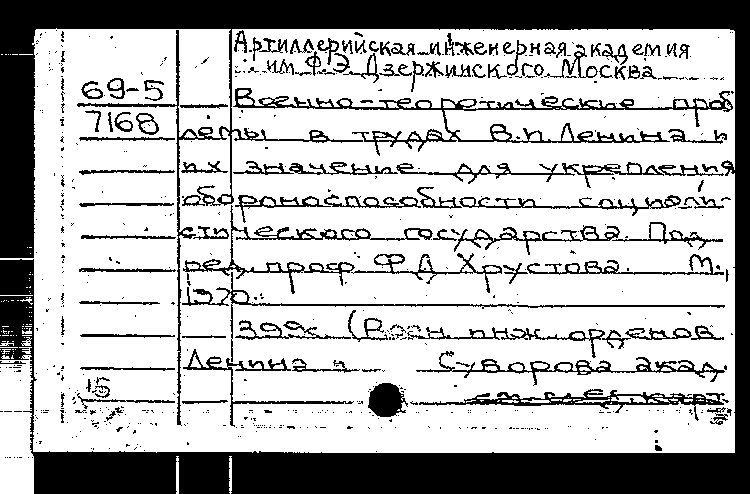 Артиллерийская инженерная академия
им Ф.Э. Дзержинского. Москва
69-5
Военно-теоретические проб
7168
лемы в трудах В.И. Ленина и
их значение для укрепления
обороноспособности социали-
стического государства. Под
ред. проф Ф Д Хрустова. М.,
1970.
399с. (Воен. инж. орденов
Ленина и Суворова акад.
15
см. след. карт